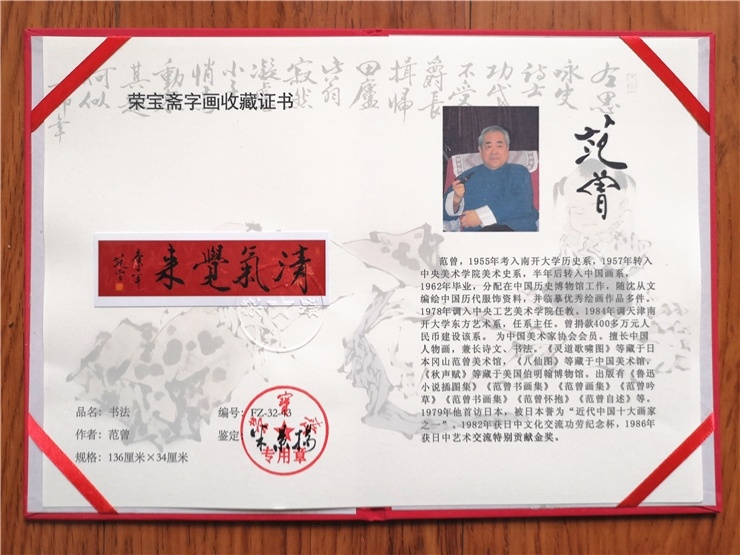 荣宝斋字画收藏证书
清氣覺来
品名：书法
作者：范曾
规格：136厘米×34厘米
编号：FZ-32-43
鉴定：米景扬
专用章
范曾
范曾，1955年考入南开大学历史系，1957年转入
中央美术学院美术史系，半年后转入中国画系，
1962年毕业，分配在中国历史博物馆工作，随沈从文
编绘中国历代服饰资料，并临摹优秀绘画作品多件。
1978年调入中央工艺美术学院任教。1984年调入天津南
开大学东方艺术系，任系主任。曾捐款400多万元人
民币建设该系。 为中国美术家协会会员。擅长中国
人物画，兼长诗文、书法。《灵道歌啸图》等藏于日
本冈山范曾美术馆，《八仙图》等藏于中国美术馆，
《秋声赋》等藏于美国伯明翰博物馆。出版有《鲁迅
小说插图集》《范曾书画集》《范曾画集》《范曾吟
草》《范曾书画集》《范曾怀抱》《范曾自述》等。
1979年他首访日本，被日本誉为“近代中国十大画家
之一”。1982年获日中文化交流功劳纪念杯，1986年
获日中艺术交流特别贡献金奖。